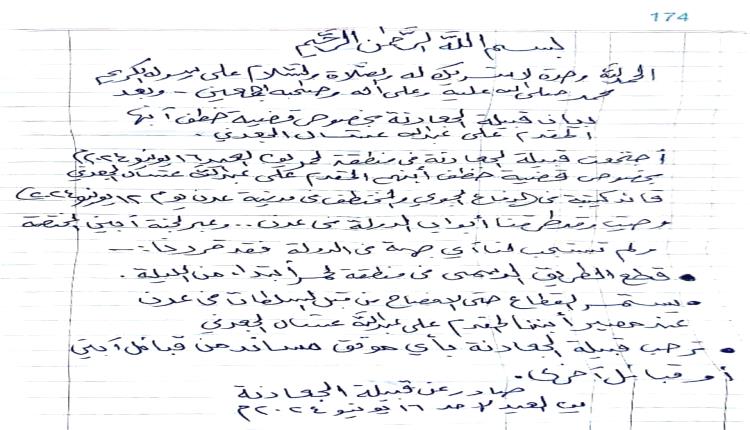 174
بسم اللّه الرَّحمٰن الرَّحيم
الحمدلله وحدة لا شريك له والصلاة والسلام على رسوله الكريم
محمد صلى الله علية وعلى اله وصحبه اجمعين - وبعد
بيان قبيلة الجعادنة بخصوص قضية خطف أبنها
المقدم على عبدالله عشال الجعدني .
أجتمعت قبيلة الجعادنة في منطقة لحمر يوم العيد ١٦ يونيو ٢٠٢٤م
بخصوص قضية خطف أبنهم المقدم على عبدالله عشال الجعدني
قائد كتيبة في الدفاع الجوي والمختطف في مدينة عدن يوم ١٢ يونيو ٢٠٢٤م
وحيث وقد طرقنا أبواب الدولة في عدن .. وعبر لجنة أبين المختصة
ولم تستجب لنا أي جهة في الدولة فقد قررنا :-
• قطع الطريق الرسمي في منطقة لحمر أبتداء من الليلة .
• يستمر القطاع حتى الإفصاح من قبل السلطات في عدن
عن مصير أبننا المقدم على عبدالله عشال الجعدني
• ترحب قبيلة الجعادنة بأي موقف مساند من قبائل أبين
أو قبائل أخرى .
صادر عن قبيلة الجعادنة
يوم العيد الاحد ١٦ يونيو ٢٠٢٤م